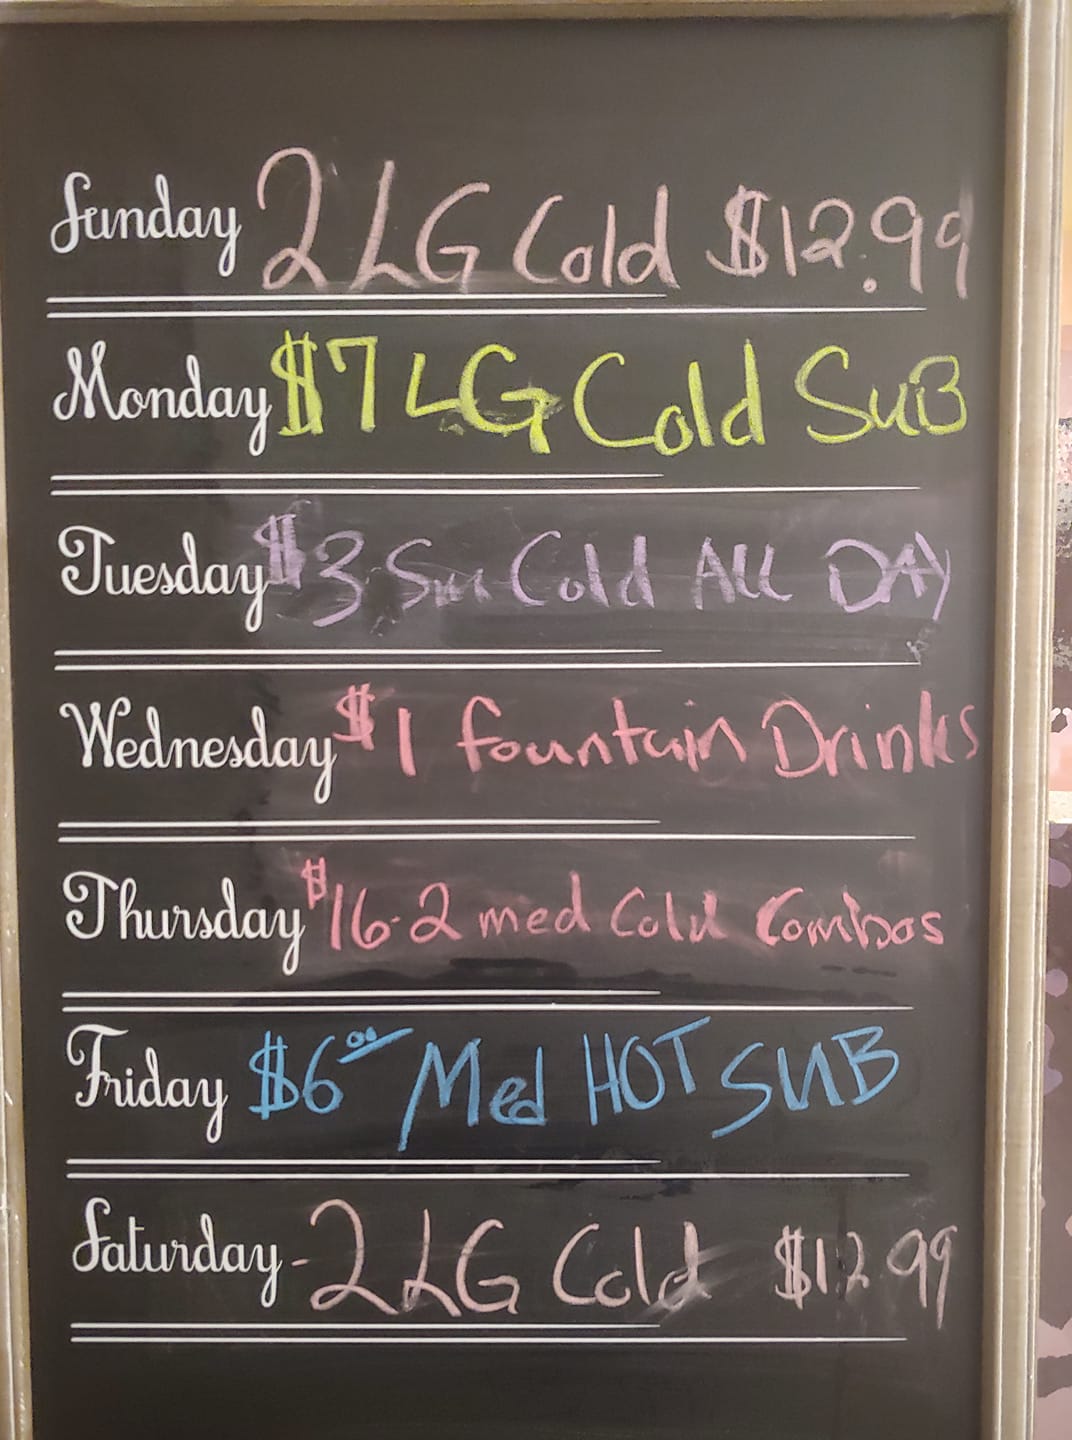 Sunday 2 LG Cold $12.99
Monday $7 LG Cold SUB
Tuesday $3 Sm Cold All DAY
Wednesday $1 fountain Drinks
Thursday $16-2 med Cold Combos
Friday $6.00 Med HOT SUB
Saturday - 2 LG Cold $12.99